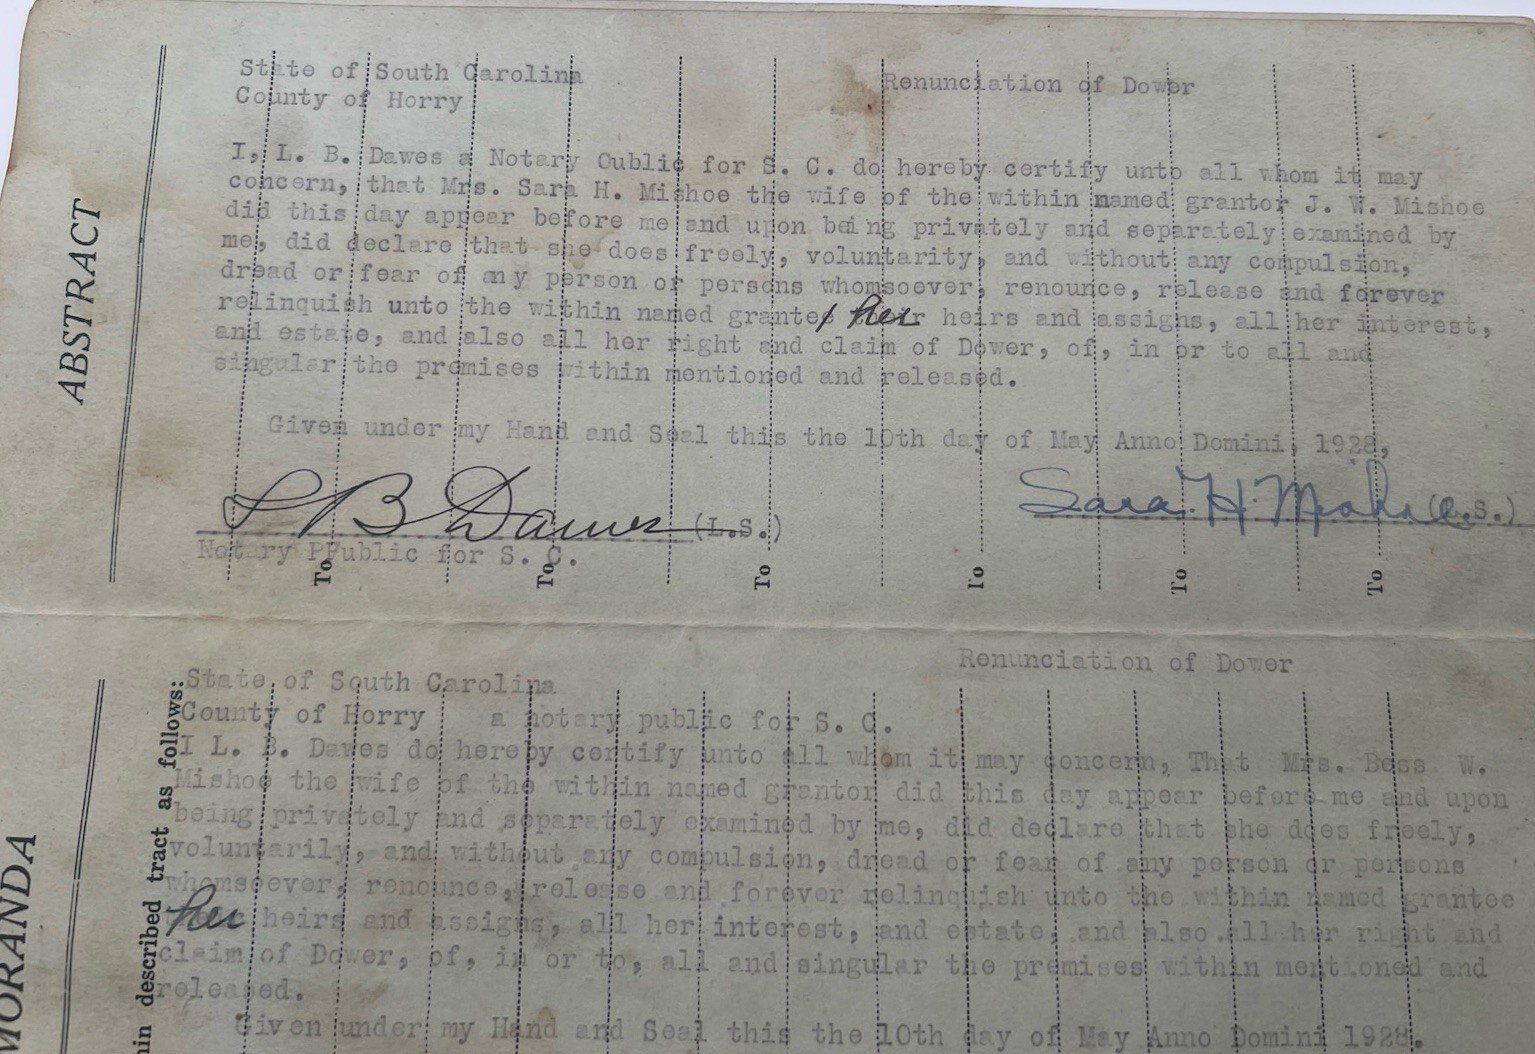 ABSTRACT
State of South Carolina
Renunciation of Dower
County of Horry
I, L. B. Dawes a Notary Oublic for S. C. do hereby certify unto all whom it may
concern, that Mrs. Sara H. Mishoe the wife of the within named grantor J. W. Mishoe
did this day appear before me and upon being privately and separately examined by
me, did declare that she does freely, voluntarity, and without any compulsion,
dread or fear of any person or persons whomsoever, renounce, release and forever
relinquish unto the within named grantee/ her heirs and assigns, all her interest,
and estate, and also all her right and claim of Dower, of, in or to all and
singular the premises within mentioned and released.
Given under my Hand and Seal this the 10th day of May Anno Domini, 1928,
L B Dawes (L.S.)
Sara H. Mishoe (L.S.)
Notary PPublic for S. C.
To To To To To To
MORANDA
hin described tract as follows:
Renunciation of Dower
State of South Carolina
County of Horry a notary public for S. C.
I L. B. Dawes do hereby certify unto all whom it may concern, That Mrs. Bess W.
Mishoe the wife of the within named grantor did this day appear before me and upon
being privately and separately examined by me, did declare that she does freely,
voluntarily, and without any compulsion, dread or fear of any person or persons
whomsoever, renounce, release and forever relinquish unto the within named grantee
her heirs and assigns, all her interest, and estate, and also all her right and
claim of Dower, of, in or to, all and singular the premises within mentioned and
released.
Given under my Hand and Seal this the 10th day of May Anno Domini 1928.